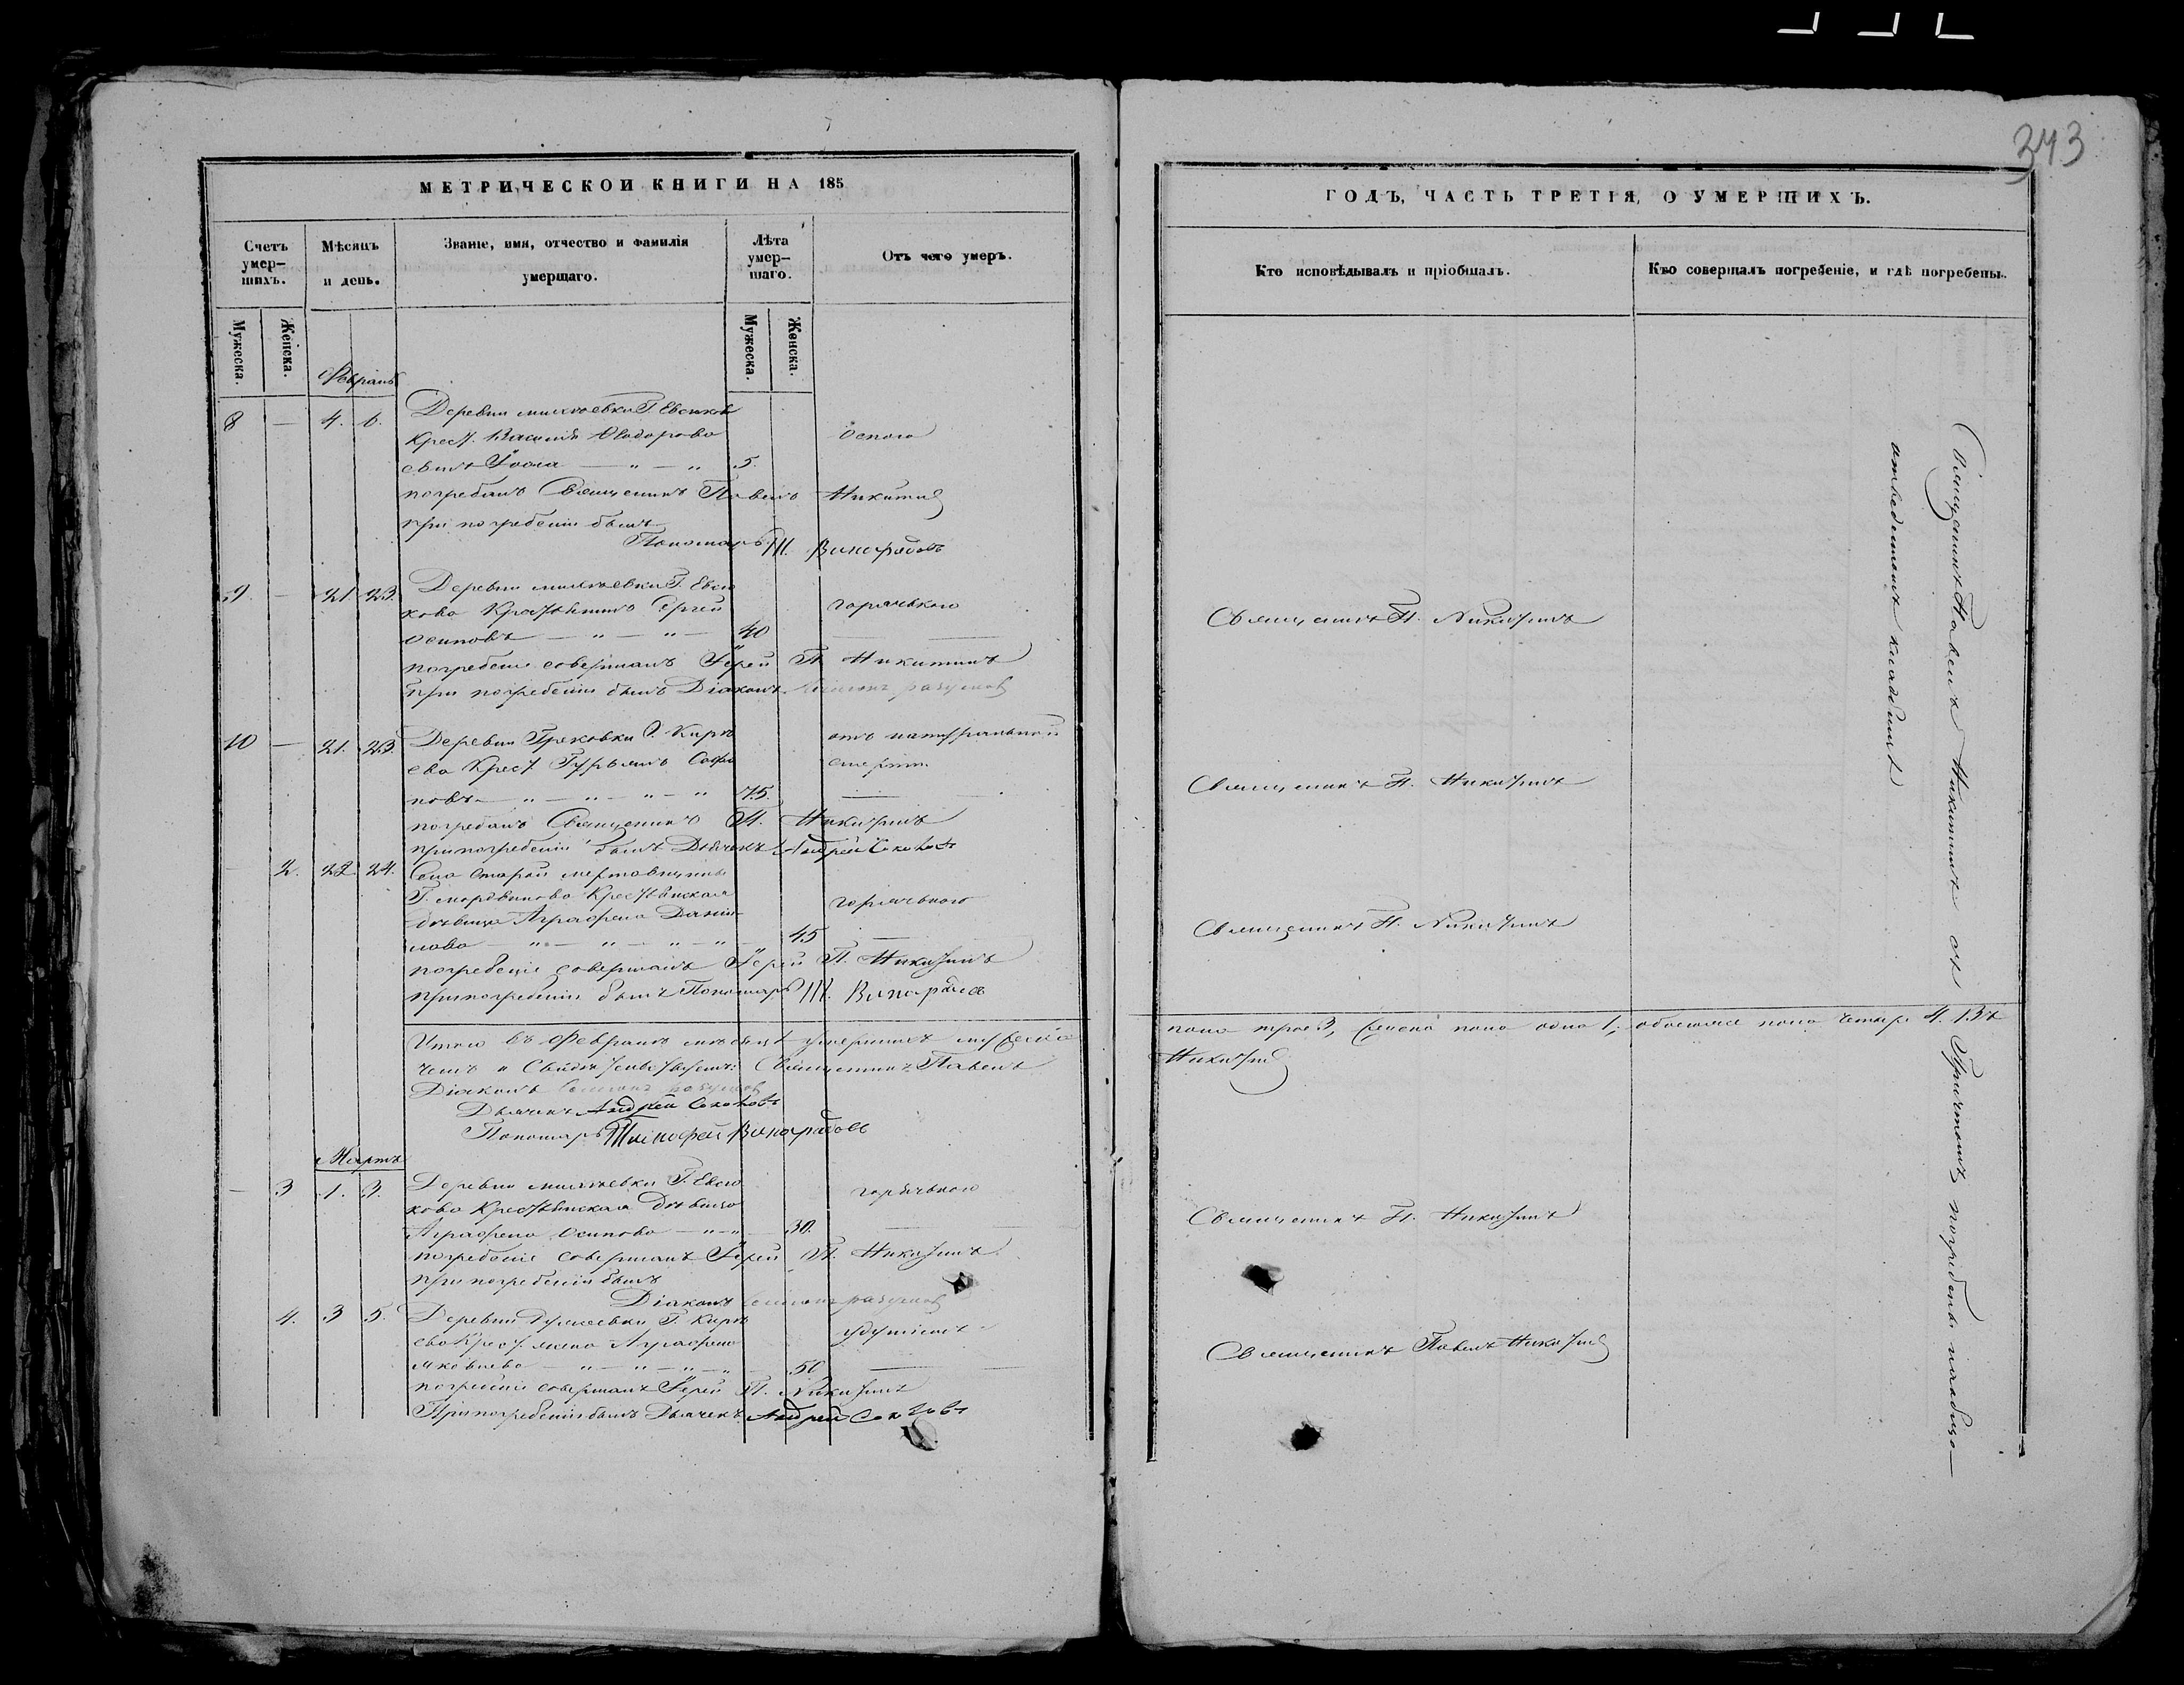 343
МЕТРИЧЕСКОЙ КНИГИ НА 185
Счетъ умер-шихъ.
Мѣсяцъ и день.
Званіе, имя, отчество и фамилія умершаго.
Лѣта умер-шаго.
Отъ чего умеръ.
Мужеска.
Женска.
Мужеска.
Женска.
Февраль
8 — 4. 6. Деревни Г. Евсюкова
Крест. Василія Ѳедорова Оспою
сынъ Іоаа — „ — „ 5.
погребалъ Священникъ Павелъ Никитинъ
при погребеніи былъ
Пономарь Т. Виноградовъ
9 — 21 23. Деревни Г. Евсю
кова Крестьянинъ Сергей горячкою
Осиповъ — „ — „ — 40
погребеніе совершалъ Іерей П. Никитинъ
При погребеніи былъ Діаконъ
10 — 21. 23. Деревни Грековки Г. Кирѣ отъ натуральной
ева Крест. Гурьянъ Софро смерти
новъ — „ — „ — „ — „ 75.
погребалъ Священникъ П. Никитинъ
при погребеніи былъ Дьячекъ Андрей Соколовъ
2. 22 24. Села Старой
Г. Мордвинова Крестьянская горячкою
дѣвица Аграфена Дании-
лова — „ — „ — „ — „ 45
погребеніе совершалъ Іерей П. Никитинъ
при погребеніи былъ Пономарь Т. Виноградовъ
Итого въ Февралѣ мѣсяцѣ умершихъ мужеска
чемъ и Священникъ Павелъ
Діаконъ
Дьячекъ Андрей Соколовъ
Пономарь Тимофей Виноградовъ
Мартъ
— 3 1. 3. Деревни Г. Евсю горячкою
кова Крестьянская дѣвица
Аграфена Осипова — „ — „ 30.
погребеніе совершалъ Іерей П. Никитинъ
при погребеніи былъ
Діаконъ
4. 3 5. Деревни Г. Кирѣ удушіемъ
ева Крест. жена Аграфена
Яковлева — „ — „ — „ — „ 50
погребеніе совершалъ Іерей П. Никитинъ
При погребеніи былъ Дьячекъ Андрей Соколовъ
ГОДЪ, ЧАСТЬ ТРЕТІЯ, О УМЕРШИХЪ.
Кто исповѣдывалъ и пріобщалъ.
Кто совершалъ погребеніе, и гдѣ погребены.
Священникъ П. Никитинъ
Священникъ П. Никитинъ
Священникъ П. Никитинъ
пола трое 3, женска пола одна 1; обоегоже пола четыре 4. Въ
Никитинъ
Священникъ П. Никитинъ
Священникъ Павелъ Никитинъ
Священникъ Павелъ Никитинъ съ Причтомъ погребены на обще-
кладбищѣ